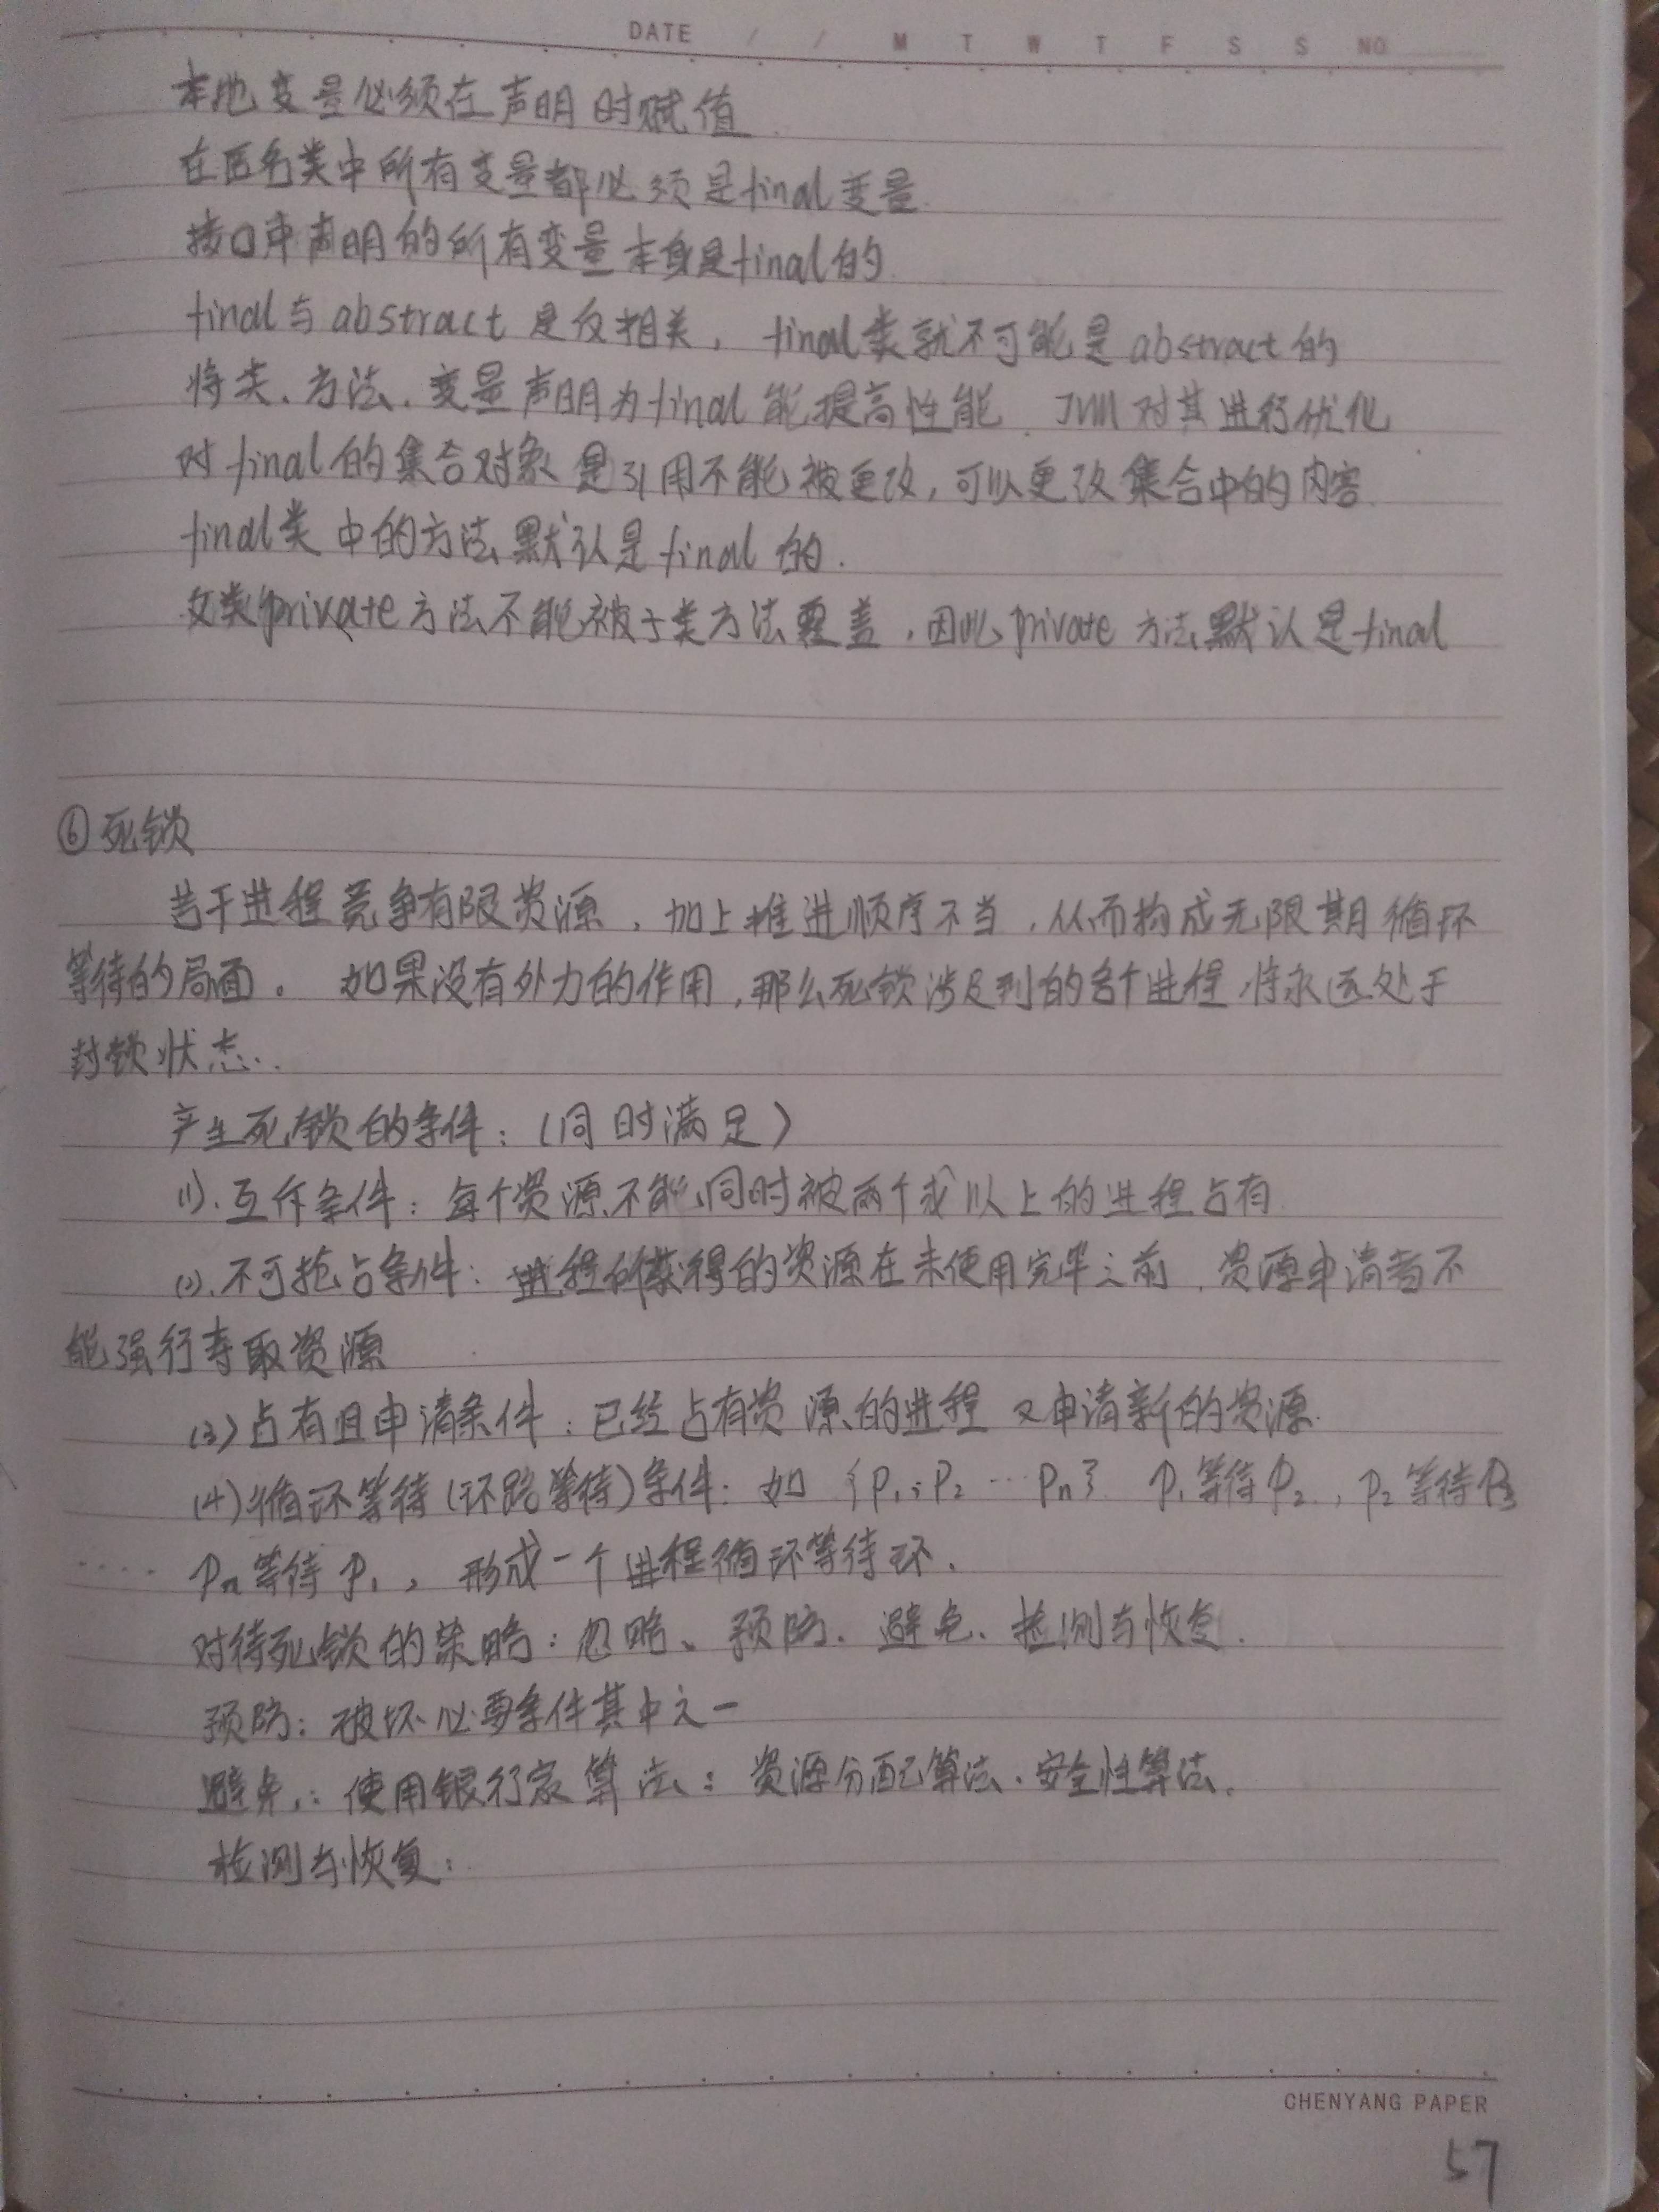 DATE / / M T W T F S S NO
本地变量必须在声明时赋值
在匿名类中所有变量都必须是final变量.
接口中声明的所有变量本身是final的
final与abstract 是反相关, final类就不可能是abstract的
将类、方法、变量声明为final能提高性能. JVM对其进行优化
对final的集合对象是引用不能被更改,可以更改集合中的内容
final类中的方法默认是final的.
父类private方法不能被子类方法覆盖,因此private方法默认是final
⑥死锁
若干进程竞争有限资源,加上推进顺序不当,从而构成无限期循环
等待的局面。如果没有外力的作用,那么死锁涉及到的各个进程将永远处于
封锁状态.
产生死锁的条件:(同时满足)
(1).互斥条件:每个资源不能同时被两个或以上的进程占有
(2).不可抢占条件:进程所获得的资源在未使用完毕之前,资源申请者不
能强行夺取资源
(3)占有且申请条件:已经占有资源的进程又申请新的资源.
(4)循环等待(环路等待)条件:如 {P1,P2 … Pn} P1等待P2,P2等待P3
.... Pn等待P1,形成一个进程循环等待环.
对待死锁的策略:忽略、预防、避免、检测与恢复.
预防:破坏必要条件其中之一
避免:使用银行家算法:资源分配算法、安全性算法.
检测与恢复:
CHENYANG PAPER
57